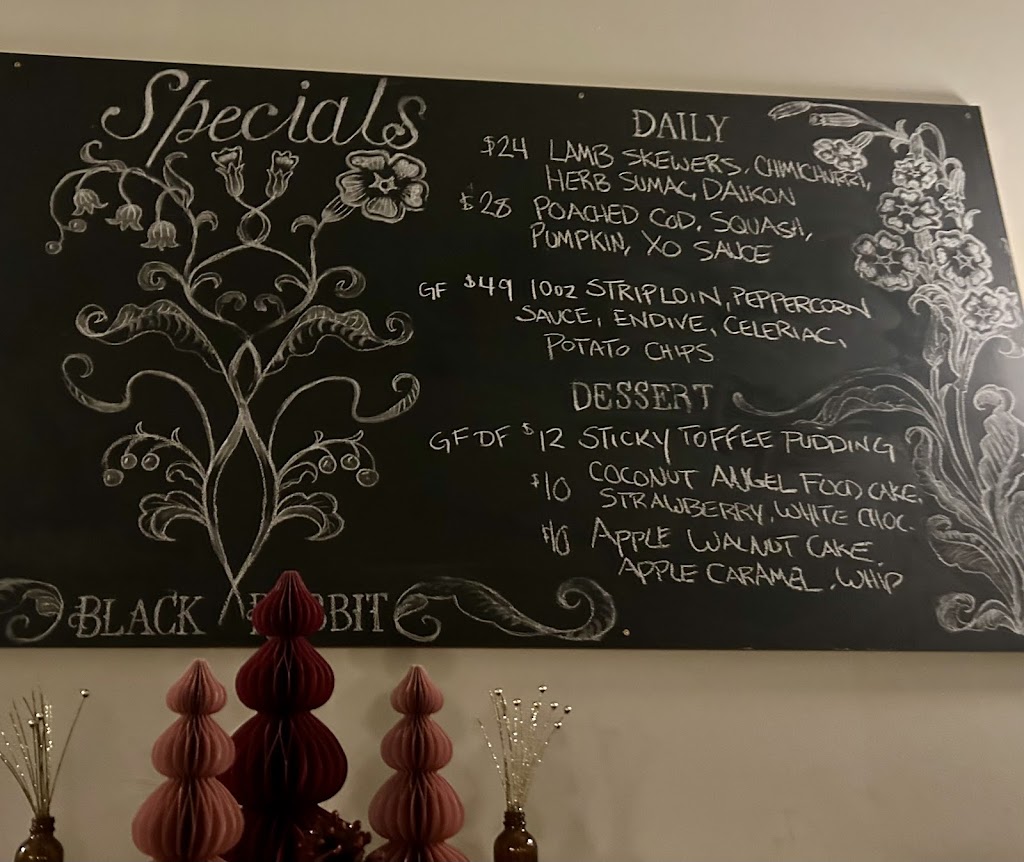 Specials
DAILY
$24 LAMB SKEWERS, CHIMICHURRI,
HERB SUMAC, DAIKON
$28 POACHED COD, SQUASH,
PUMPKIN, XO SAUCE
GF $49 10oz STRIPLOIN, PEPPERCORN
SAUCE, ENDIVE, CELERIAC,
POTATO CHIPS
DESSERT
GF DF $12 STICKY TOFFEE PUDDING
$10 COCONUT ANGEL FOOD CAKE,
STRAWBERRY, WHITE CHOC.
$10 APPLE WALNUT CAKE,
APPLE CARAMEL, WHIP
BLACK